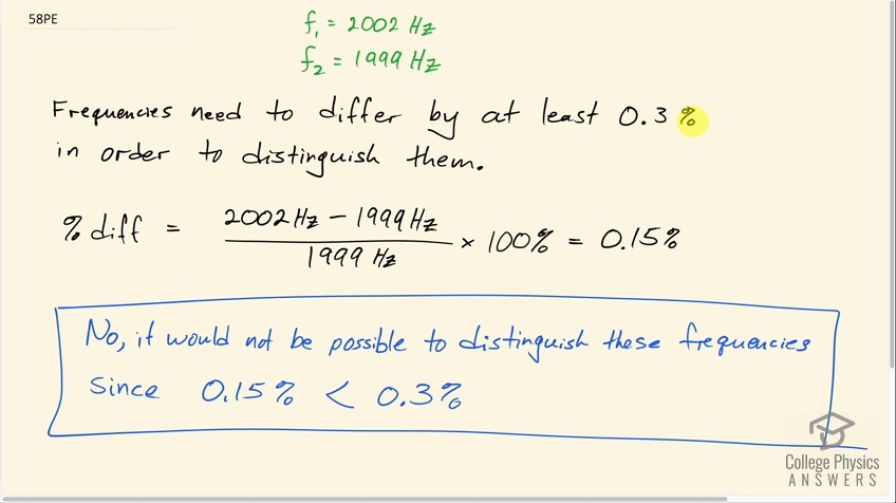 58PE
f₁ = 2002 Hz
f₂ = 1999 Hz
Frequencies need to differ by at least 0.3%
in order to distinguish them.
% diff = (2002 Hz - 1999 Hz) / 1999 Hz × 100% = 0.15%
No, it would not be possible to distinguish these frequencies
since 0.15% < 0.3%
College Physics
ANSWERS